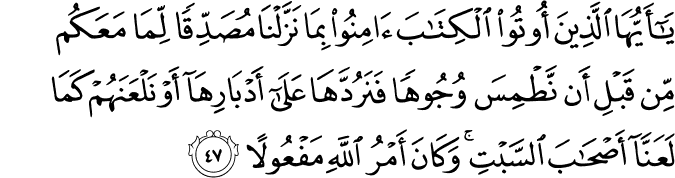 يَـٰٓأَيُّهَا ٱلَّذِينَ أُوتُوا۟ ٱلْكِتَـٰبَ ءَامِنُوا۟ بِمَا نَزَّلْنَا مُصَدِّقًا لِّمَا مَعَكُم
مِّن قَبْلِ أَن نَّطْمِسَ وُجُوهًا فَنَرُدَّهَا عَلَىٰٓ أَدْبَارِهَآ أَوْ نَلْعَنَهُمْ كَمَا
لَعَنَّآ أَصْحَـٰبَ ٱلسَّبْتِ ۚ وَكَانَ أَمْرُ ٱللَّهِ مَفْعُولًا ٤٧